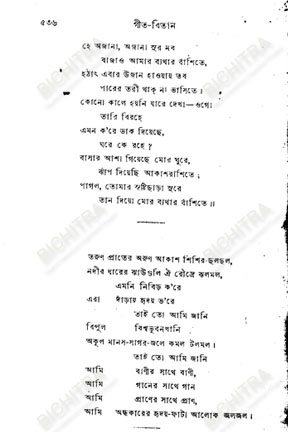 ৫৩৬
গীত-বিতান
হে অজানা, অজানা সুর নব
বাজাও আমার ব্যথার বাঁশিতে,
হঠাৎ এবার উজান হাওয়ায় তব
পারের তরী থাক্ না ভাসিতে।
কোনো কালে হয়নি যারে দেখা—ওগো
তারি বিরহে
এমন ক'রে ডাক দিয়েছে,
ঘরে কে রহে?
বাসার আশা গিয়েছে মোর ঘুরে,
ঝাঁপ দিয়েছি আকাশরাশিতে;
পাগল, তোমার সৃষ্টিছাড়া সুরে
তান দিয়ো মোর ব্যথার বাঁশিতে॥
তরুণ প্রাতের অরুণ আকাশ শিশির-ছলছল,
নদীর ধারের ঝাউগুলি ঐ রৌদ্রে ঝলমল,
এমনি নিবিড় ক'রে
এরা দাঁড়ায় হৃদয় ভ'রে
তাই তো আমি জানি
বিপুল বিশ্বভুবনখানি
অকূল মানস-সাগর-জলে কমল টলমল।
তাই তো আমি জানি
আমি বাণীর সাথে বাণী,
আমি গানের সাথে গান
আমি প্রাণের সাথে প্রাণ,
আমি অন্ধকারের হৃদয়-ফাটা আলোক জলজল।
BICHITRA
BICHITRA
BICHITRA
BICHITRA
BICHITRA
BICHITRA